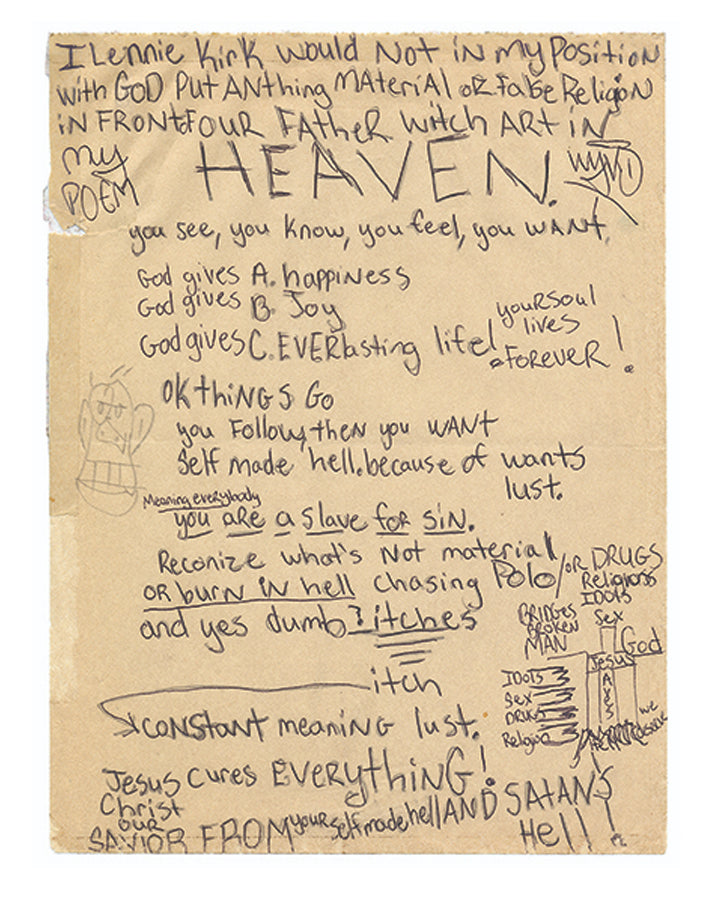 I Lennie Kirk would Not in my position
with GOD PUT ANthing MAteriAl OR False Religion
iN FRONt oF OUR FAtHeR witch ARt iN
my POEM
HEAVEN.
you see, you know, you feel, you WANt.
God gives A. happiness
God gives B. Joy
God gives C. EVERlasting life!
youR soul
lives
FOREVER!
OK thiNGS Go
you Follow, then you WANt
Self made hell. because of wants
lust.
Meaning everybody
you aRe a slave foR siN.
Reconize what's Not material
OR burn iN hell chasing Polo/OR DRUGS
Religions
IDOls
Sex
and yes dumb Bitches
BRiDGes
BROKEN
MAN
God
Jesus
SAVES
IDOls
Sex
DRUGs
Religion
we
itch
CONStANt meaning lust.
Jesus cures EVERythiNG!
Christ
our
SAVIOR FROM your self made hell AND SAtANS
Hell!